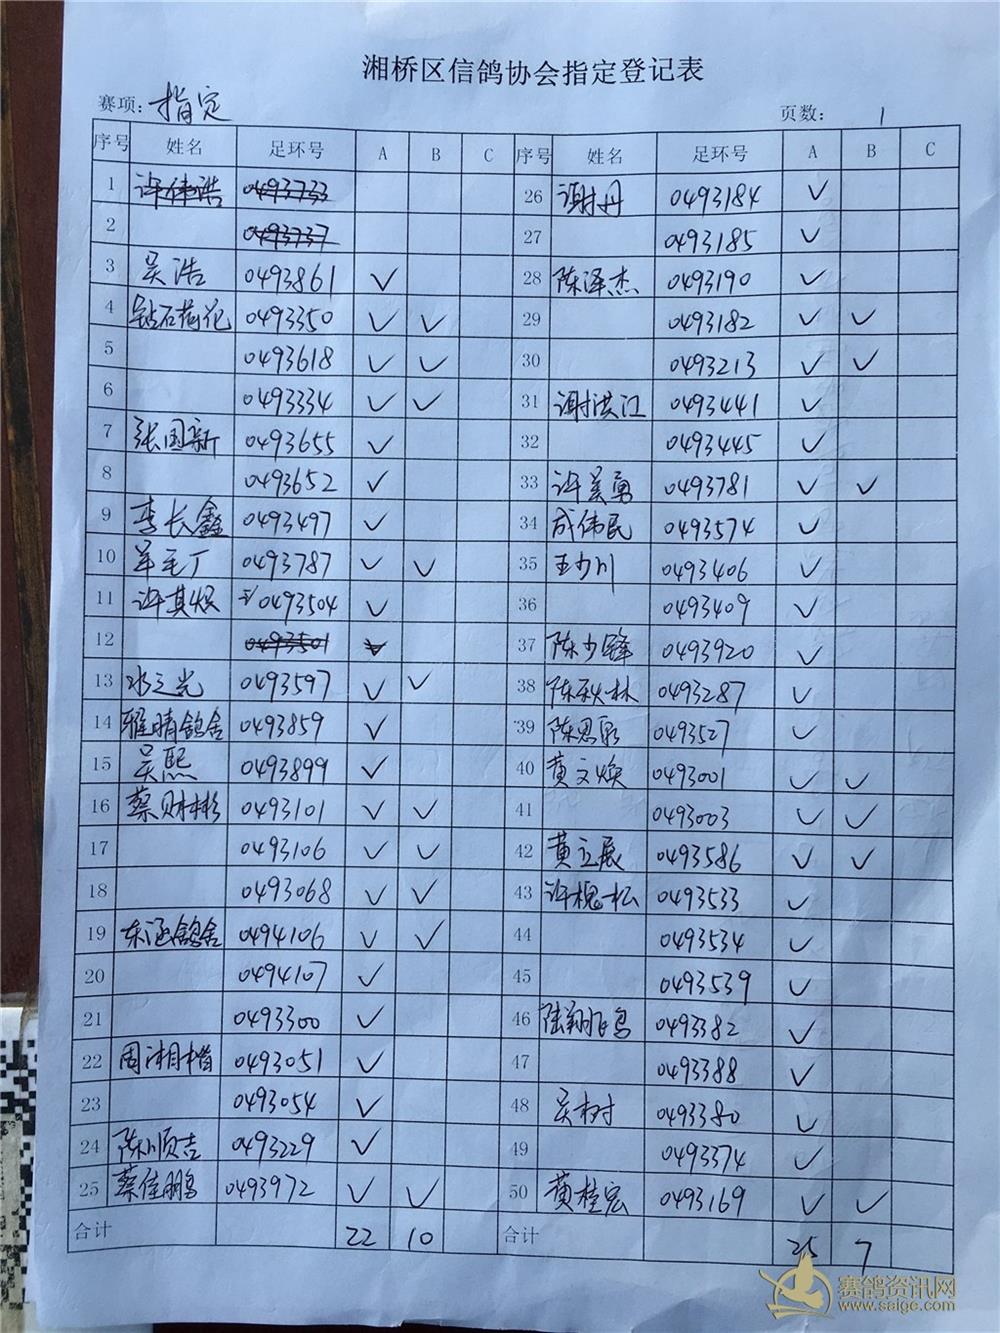 湘桥区信鸽协会指定登记表
赛项: 指定 页数: 1
序号 姓名 足环号 A B C 序号 姓名 足环号 A B C
1 许伟浩 0493733 26 谢丹 0493184 ✓
2 0493737 27 0493185 ✓
3 吴浩 0493861 ✓ 28 陈泽杰 0493190 ✓
4 钻石荷花 0493350 ✓ ✓ 29 0493182 ✓ ✓
5 0493618 ✓ ✓ 30 0493213 ✓ ✓
6 0493334 ✓ ✓ 31 谢洪江 0493441 ✓
7 张国新 0493655 ✓ 32 0493445 ✓
8 0493652 ✓ 33 许美勇 0493781 ✓ ✓
9 李长鑫 0493497 ✓ 34 成伟民 0493574 ✓
10 羊毛丁 0493787 ✓ ✓ 35 王少川 0493406 ✓
11 许其炽 0493504 ✓ 36 0493409 ✓
12 0493501 ✓ 37 陈少锋 0493920 ✓
13 水之光 0493597 ✓ ✓ 38 陈秋林 0493287 ✓
14 雅晴鸽舍 0493859 ✓ 39 陈思 0493527 ✓
15 吴熙 0493899 ✓ 40 黄文焕 0493001 ✓ ✓
16 蔡财彬 0493101 ✓ ✓ 41 0493003 ✓ ✓
17 0493106 ✓ ✓ 42 黄立展 0493586 ✓ ✓
18 0493068 ✓ ✓ 43 许槐松 0493533 ✓
19 东涵鸽舍 0494106 ✓ ✓ 44 0493534 ✓
20 0494107 ✓ 45 0493539 ✓
21 0493300 ✓ 46 陆翔飞鸟 0493382 ✓
22 周湘楷 0493051 ✓ 47 0493388 ✓
23 0493054 ✓ 48 吴树 0493380 ✓
24 陈顺吉 0493229 ✓ 49 0493374 ✓
25 蔡佳鹏 0493972 ✓ ✓ 50 黄桂宏 0493169 ✓ ✓
合计 22 10 合计 25 7
赛鸽资讯网
www.saige.com